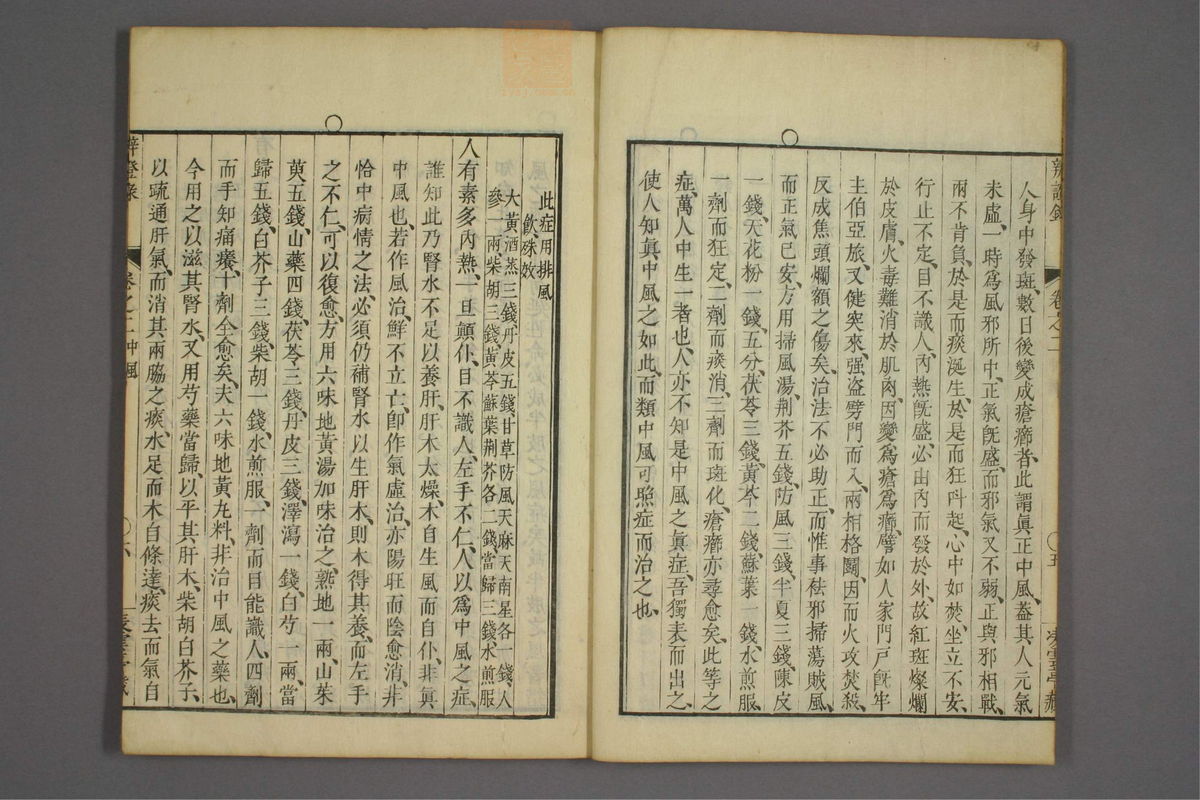 人身中發斑數日後變成瘡癤者此謂眞正中風葢其人元氣
未虛一時爲風邪所中正氣旣盛而邪氣又不弱正與邪相戰
兩不肯負於是而痰涎生於是而狂呌起心中如焚坐立不安
行止不定目不識人內熱旣盛必由內而發於外故紅斑燦爛
於皮膚火毒難消於肌肉因變爲瘡爲癤譬如人家門戸旣牢
主伯亞旅又健突來强盜劈門而入兩相格鬭因而火攻焚殺
反成焦頭爛額之傷矣治法不必助正而惟事袪邪掃蕩賊風
而正氣已安方用掃風湯荆芥五錢防風三錢半夏三錢陳皮
一錢天花粉一錢五分茯苓三錢黃芩二錢蘇葉一錢水煎服
一劑而狂定二劑而痰消三劑而斑化瘡癤亦尋愈矣此等之
症萬人中生一者也人亦不知是中風之眞症吾獨表而出之
使人知眞中風之如此而類中風可照症而治之也
卷之二
五
此症用排風
飮殊效
大黃酒蒸三錢丹皮五錢甘草防風天麻天南星各一錢人
參一兩柴胡三錢黃芩蘇葉荆芥各二錢當歸三錢水煎服
人有素多內熱一旦顚仆目不識人左手不仁人以爲中風之症
誰知此乃腎水不足以養肝肝木太燥木自生風而自仆非眞
中風也若作風治鮮不立亡卽作氣虛治亦陽旺而陰愈消非
恰中病情之法必須仍補腎水以生肝木則木得其養而左手
之不仁可以復愈方用六味地黃湯加味治之熟地一兩山茱
萸五錢山藥四錢茯苓三錢丹皮三錢澤瀉一錢白芍一兩當
歸五錢白芥子三錢柴胡一錢水煎服一劑而目能識人四劑
而手知痛癢十劑全愈矣夫六味地黃丸料非治中風之藥也
今用之以滋其腎水又用芍藥當歸以平其肝木柴胡白芥子
以疏通肝氣而消其兩脇之痰水足而木自條達痰去而氣自
卷之二中風
六